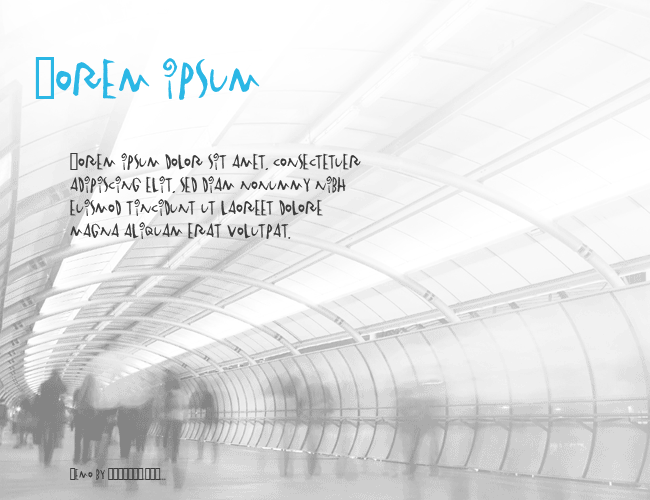 ▯orem ipsum
▯orem ipsum dolor sit amet, consectetuer
adipiscing elit, sed diam nonummy nibh
euismod tincidunt ut laoreet dolore
magna aliquam erat volutpat.
▯emo by